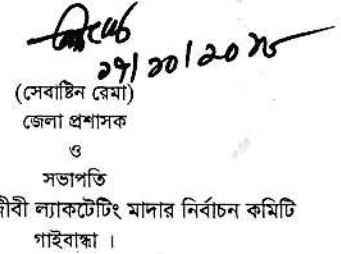 (সেবাষ্টিন রেমা)
জেলা প্রশাসক
ও
সভাপতি
জীবী ল্যাকটেটিং মাদার নির্বাচন কমিটি
গাইবান্ধা ।